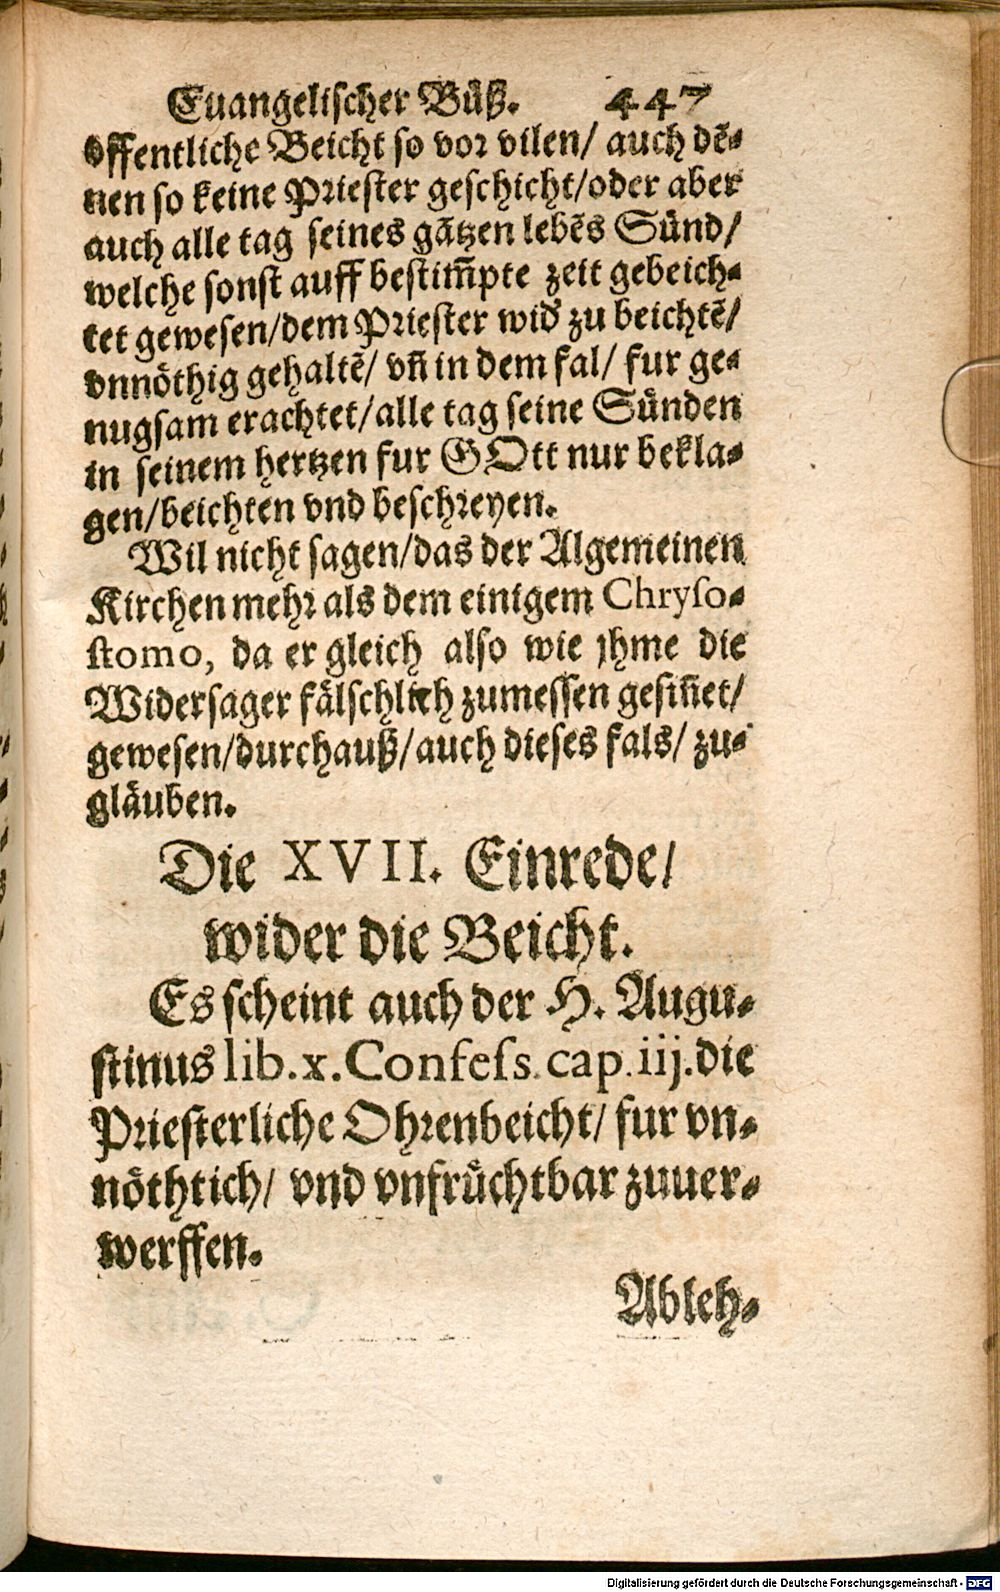 Euangelischer Büß. 447
offentliche Beicht so vor vilen/ auch dẽ-
nen so keine Priester geschicht/oder aber
auch alle tag seines gãtzen lebẽs Sünd/
welche sonst auff bestim̃pte zeit gebeich-
tet gewesen/dem Priester wid' zu beichtẽ/
vnnöthig gehaltẽ/ vñ in dem fal/ fur ge-
nugsam erachtet/alle tag seine Sünden
in seinem hertzen fur GOtt nur bekla-
gen/beichten vnd beschreyen.
Wil nicht sagen/das der Algemeinen
Kirchen mehr als dem einigem Chryso-
stomo, da er gleich also wie jhme die
Widersager fälschlich zumessen gesiñet/
gewesen/durchauß/auch dieses fals/ zu-
gläuben.
Die XVII. Einrede/
wider die Beicht.
Es scheint auch der H. Augu-
stinus lib.x.Confess.cap.iij.die
Priesterliche Ohrenbeicht/ fur vn-
nöthtich/ vnd vnfrüchtbar zuuer-
werffen.
Ableh-
Digitalisierung gefördert durch die Deutsche Forschungsgemeinschaft - DFG